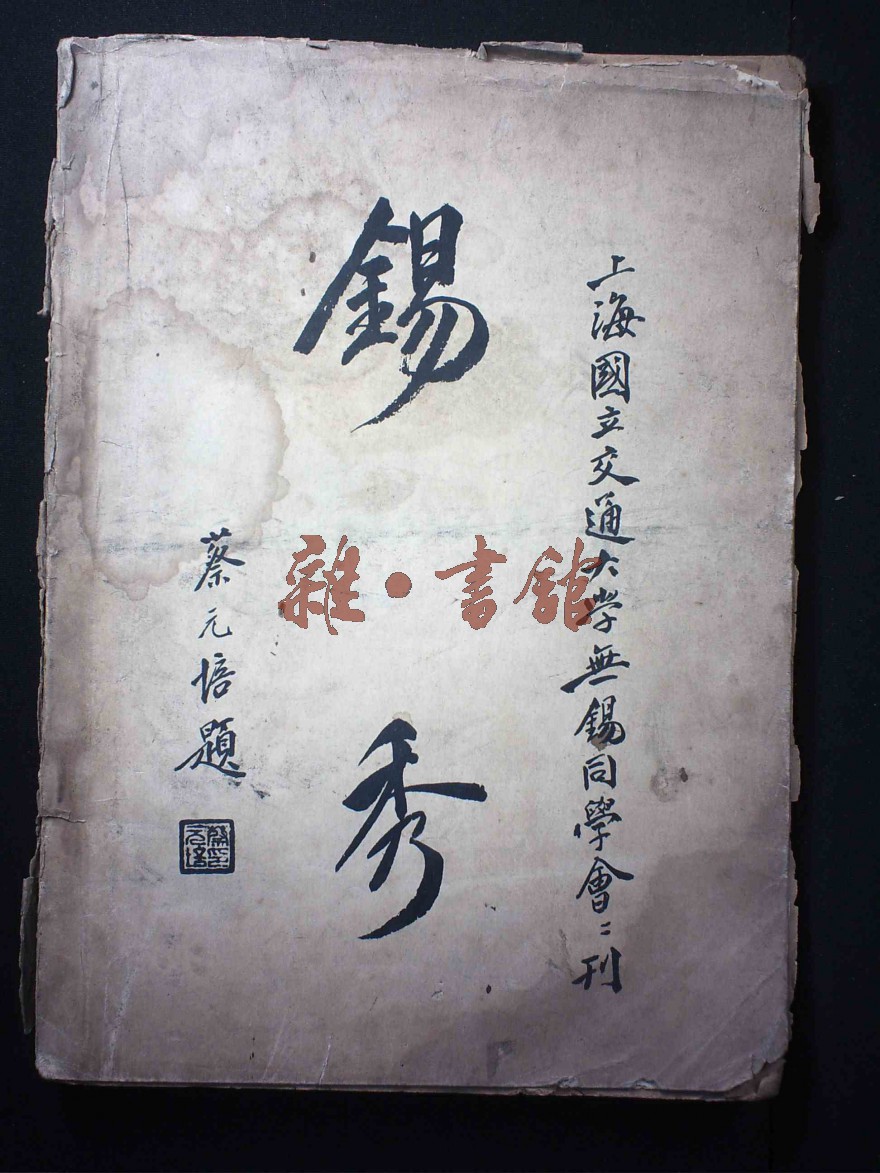 上海國立交通大学無錫同學會〻刊
錫秀
蔡元培題
蔡印元培
雜·書館